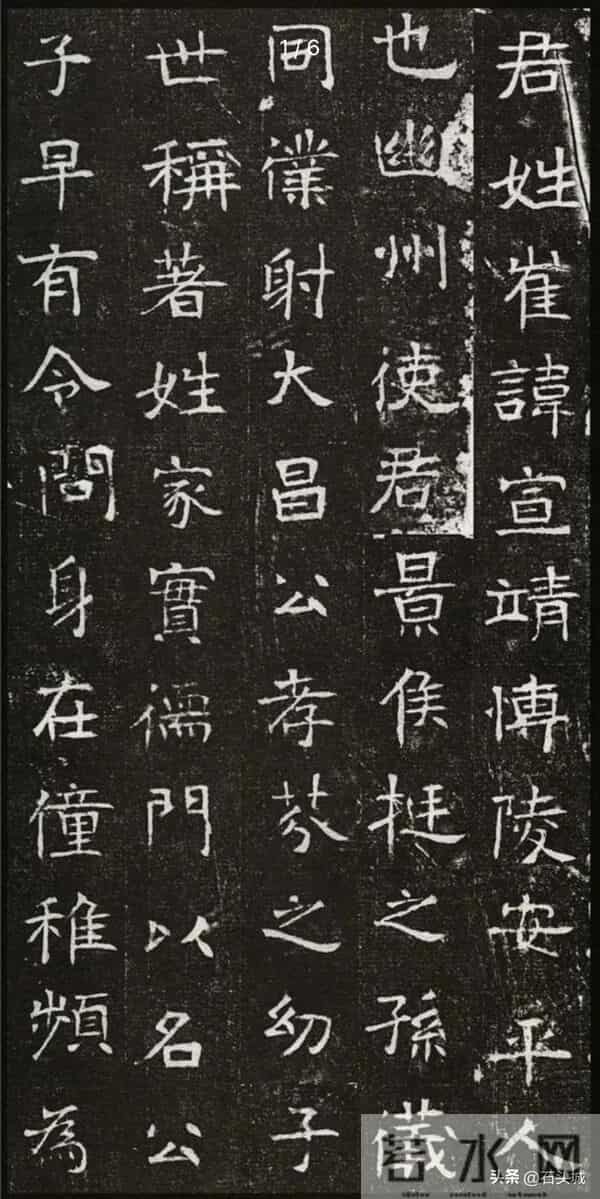 君姓崔諱宣靖愽陵安平人
也幽州使君景侯挺之孫儀
同僕射大昌公孝芬之幼子
世稱著姓家實儒門以名公
子早有令問身在僮稚頻為
1/6
若水网
头条 @石头城